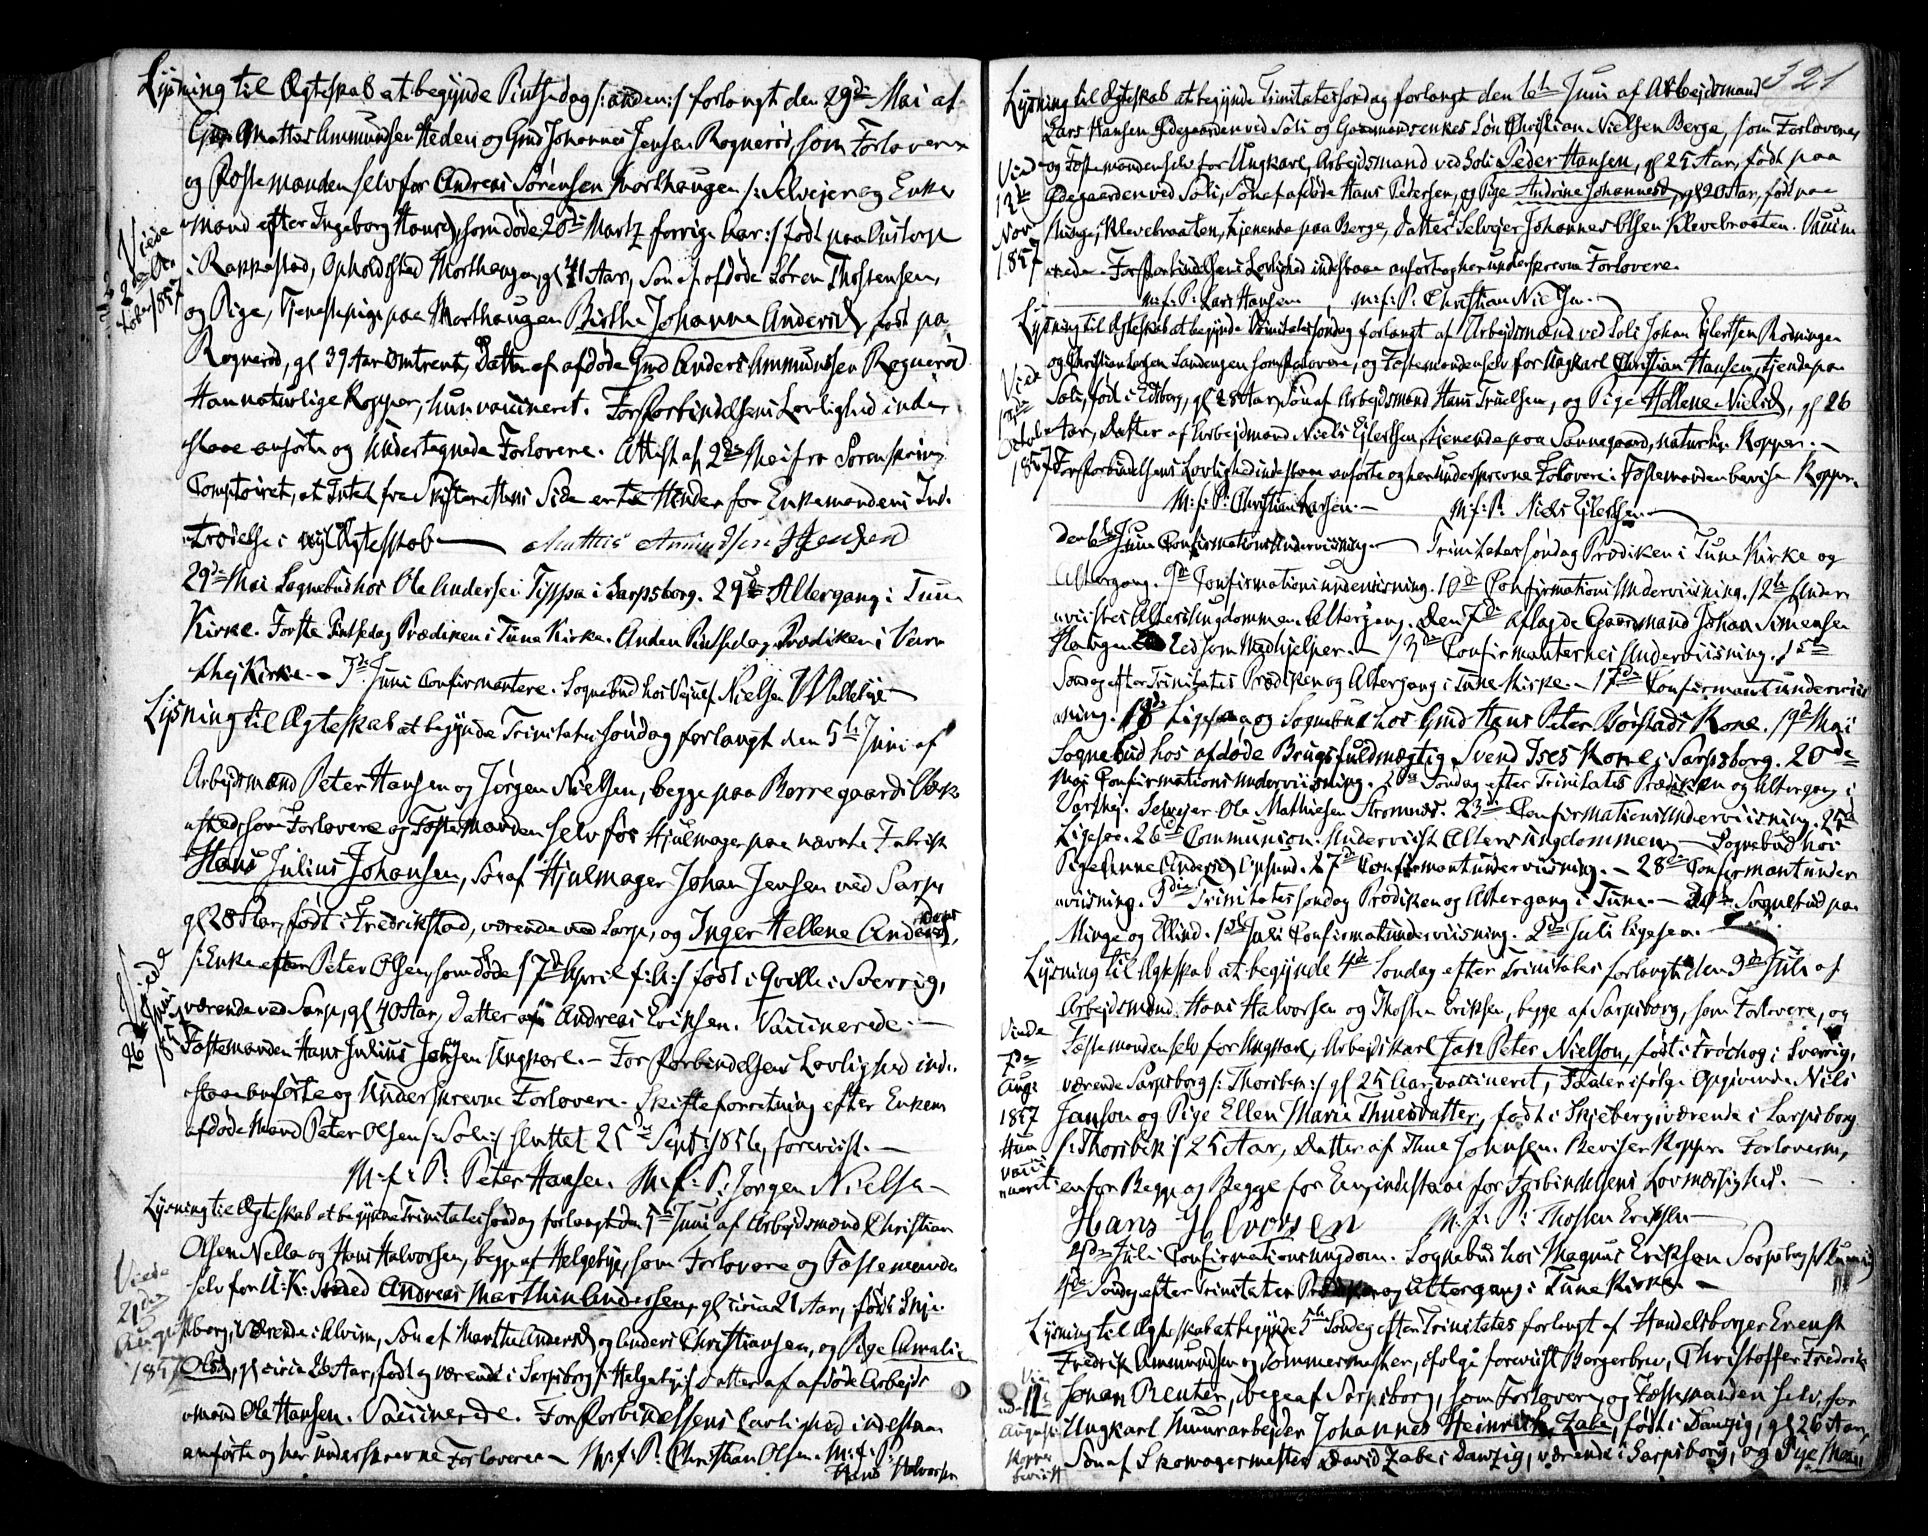 Lysning til Ægteskab at begynde Pintsedag /:anden:/ forlangt den 29de Mai af
Gmd Mattis Ammundsen Heden og Gmd Johannes Jensen Rognerød, som Forlovere
og Fæstemanden selv for Andreas Sørensen Morthaugen /:Selvejer og Enke
mand efter Ingeborg Hansd, som døde 20de Martz forrige Aar:/ født paa
i Rakkestad, Opholdsted Morthaugen, gl 41 Aar, Søn af afdøde Søren Thostensen,
og Pige, Tjenestepige paa Morthaugen Birthe Johanne Andersd, født paa
Rognerød, gl 39 Aar omtrent, Datter af afdøde Gmd Anders Ammundsen Rognerød
Han naturlige Kopper, hun vaccineret. For Forbindelsens Lovlighed inde
staae anførte og undertegnede Forlovere. Attest af 2den Mai fra Sorenskriver
Comptoiret, at Intet fra Skifterettens Side er til Hinder for Enkemandens Ind
trædelse i nyt Ægteskab Mattis Amundsen Heden
Viede 2den October 1857
29de Mai Sognebud hos Ole Andersen Tyssa i Sarpsborg. 29de Altergang i Tune
Kirke. Første Pintsedag Prædiken i Tune Kirke. Anden Pintsedag Prædiken i Var
theg Kirke. - 3de Juni Confirmantere. Sognebud hos Nielsen Valleby
Lysning til Ægteskab at begynde Trinitatis Søndag forlangt den 5te Juni af
Arbejdsmænd Peter Hansen og Jørgen Nielsen, begge paa Borregaards
som Forlovere og Fæstemanden selv for Hjulmager paa nævnte Fabrik
Hans Julius Johansen, Søn af Hjulmager Johan Jensen ved Sarp,
gl 28 Aar, født i Fredrikstad, værende ved Sarp, og Inger Hellene Anders datter,
/:Enke efter Peter Olsen, som døde 17de April f: A:/ født i Qville i Sverrig,
værende ved Sarp, gl 40 Aar, Datter af Andreas Eriksen. Vaccinerede.
Fæstemanden Hans Julius Johansen Ungkarl. - For Forbindelsens Lovlighed inde
staae anførte og underskrevne Forlovere. Skifteforretning efter Enkens
afdøde Mand Peter Olsen /:Soli:/ sluttet 25de Sept: 1856, foreviist. -
M: f: P: Peter Hansen. M: f: P: Jørgen Nielsen
Viede 26de Juni
Lysning til Ægteskab at begynde Trinitatis Søndag forlangt den 5te Juni af Arbejdsmænd Christian
Olsen Nella og Hans Halvorsen, begge af Helgebye, som Forlovere og Fæstemanden
selv for U: K: Andreas Marthin Andersen, gl circa 21 Aar, født Skje
berg, værende i Alvim, Søn af Marthe Andersd og Anders Christiansen, og Pige Annalie
Olsd, gl circa 23 Aar, født og værende i Sarpsborg /:Helgeby:/ Datter af afdøde Arbejds
mand Ole Hansen. Vaccinerede. For Forbindelsens Lovlighed indestaae
anførte og her underskrevne Forlovere - M: f: P: Christian Olsen. M: f: P:
Hans Halvorsen
Viede 21de August 1857
321
Lysning til Ægteskab at begynde Trinitatis Søndag forlangt den 6te Juni af Arbejdsmand
Lars Hansen Ødegaarden ved Soli og Gaardmandsenkes Søn Christian Nielsen Berge, som Forlovere,
og Fæstemanden selv for Ungkarl, Arbejdsmand ved Soli Peder Hansen, gl 25 Aar, født paa
Ødegaarden ved Soli, Søn af afdøde Hans Pedersen, og Pige Andrine Johannesd, gl 20 Aar, født paa
Klevebraaten, tjenende paa Berge, Datter af Selvejer Johannes Olsen Klevebraaten. Vaccine
rede. For Forbindelsens Lovlighed indestaae anførte og her underskrevne Forlovere.
M: f: P: Lars Hansen M: f: P: Christian Nielsen. -
Viede 12te Nov 1857
Lysning til Ægteskab at begynde Trinitatis Søndag forlangt af Arbejdsmænd ved Soli Johan Ejlertsen Rødningen
og Christian Larsen Sandengen som Forlovere, og Fæstemanden selv for Ungkarl Christian Hansen, tjende paa
Soli, født i Edsberg, gl 28 Aar, Søn af Arbejdsmand Hans Truelsen, og Pige Hellene Nielsd, gl 26
Aar, Datter af Arbejdmand Niels Ejlertsen, tjenende paa Sannegaard, naturlige Kopper. -
For Forbindelsens Lovlighed indestaae anførte og her underskrevne Forlovere. Fæstemanden bevise Kopper.
M: f: P: Christian Larsen. - M: f: P. Niels Ejlertsen. -
Viede October 1857
Den 6te Juni Confirmations Underviisning. - Trinitatis søndag Prædiken i Tune Kirke og
Altergang. 9de Confirmationsunderviisning. 10de Confirmations Underviisning. 12te Under
viistes Alters Ungdommen Altergang. Den 7de aflagde Gaardmand Johan Simensen
Haugen Eed som Medhjelper. - 13de Confirmanternes Underviisning. 1ste
Søndag efter Trinitatis Prædiken og Altergang i Tune Kirke. - 17de Confirmantunderviis
ning. 18de Ligesaa og Sognebud hos Gmd Hans Peter Borstads Kone. 19de Mai
Sognebud hos afdøde Brugsfuldmægtig Svend Ises Kone i Sarpsborg. 20de
Mai Confirmations Underviisning. 2den Søndag efter Trinitatis Prædiken og Altergang i
Vartheg. Selvejer Ole Mathiesen Strømnes. 23de Confirmations Underviisning. 25de
Ligesaa. 26de Communion. Underviist Alters ungdommen. Sognebud hos
Pige Anne Andersd. 27de Confirmantunderviisning. - 28de Confirmantunder
viisning. 3die Trinitatis søndag Prædiken og Altergang i Tune. - Sognebud paa
Minge og Ellind. 1ste Juli Confirmantunderviisning. 2den Juli ligesaa. -
Lysning til Ægteskab at begynde 4de Søndag efter Trinitatis forlangt den 3de Juli af
Arbejdsmænd Hans Halvorsen og Thosten Eriksen, begge af Sarpsborg, som Forlovere, og
Fæstemanden selv for Ungkarl, Arbejdskarl Jan Peter Nielson, født i Frøchog i Sverrig,
værende Sarpsborg /: Thorsbek:/ gl 25 Aar, vaccineret, Fader ifølge Opgivende Nils
Janson og Pige Ellen Marie Thuesdatter, født i Skjeberg, værende i Sarpsborg
/: Thorsbek:/ 25 Aar, Datter af Thue Johnsen. Beviser Kopper. Forloverne,
en for Begge og Begge for En indestaae for Forbindelsens Lovmæssighed. -
Hans Halvorsen M: f: P: Thosten Eriksen
Viede 7de Aug: 1857 Hun vacci neret
Juli Confirmationsungdom. Sognebud hos Magnus Eriksen Sarpsborg
4de Søndag efter Trinitatis Prædiken og Altergang i Tune Kirke. -
Lysning til Ægteskab at begynde 5te Søndag efter Trinitatis forlangt af Handelsborger Ernst
Fredrik Ammundsen og Tømmermester, ifølge foreviist Borgerbrev, Christoffer Fredrik
Johan Reuter, begge af Sarpsborg, som Forlovere, og Fæstemanden selv, for
Ungkarl Muurarbejder Johannes Heinrich Zabe, født i Danzig, gl 26 Aar,
Søn af Skomagermester David Zabe i Danzig, værende i Sarpsborg, og Pige
August Kopper beviist